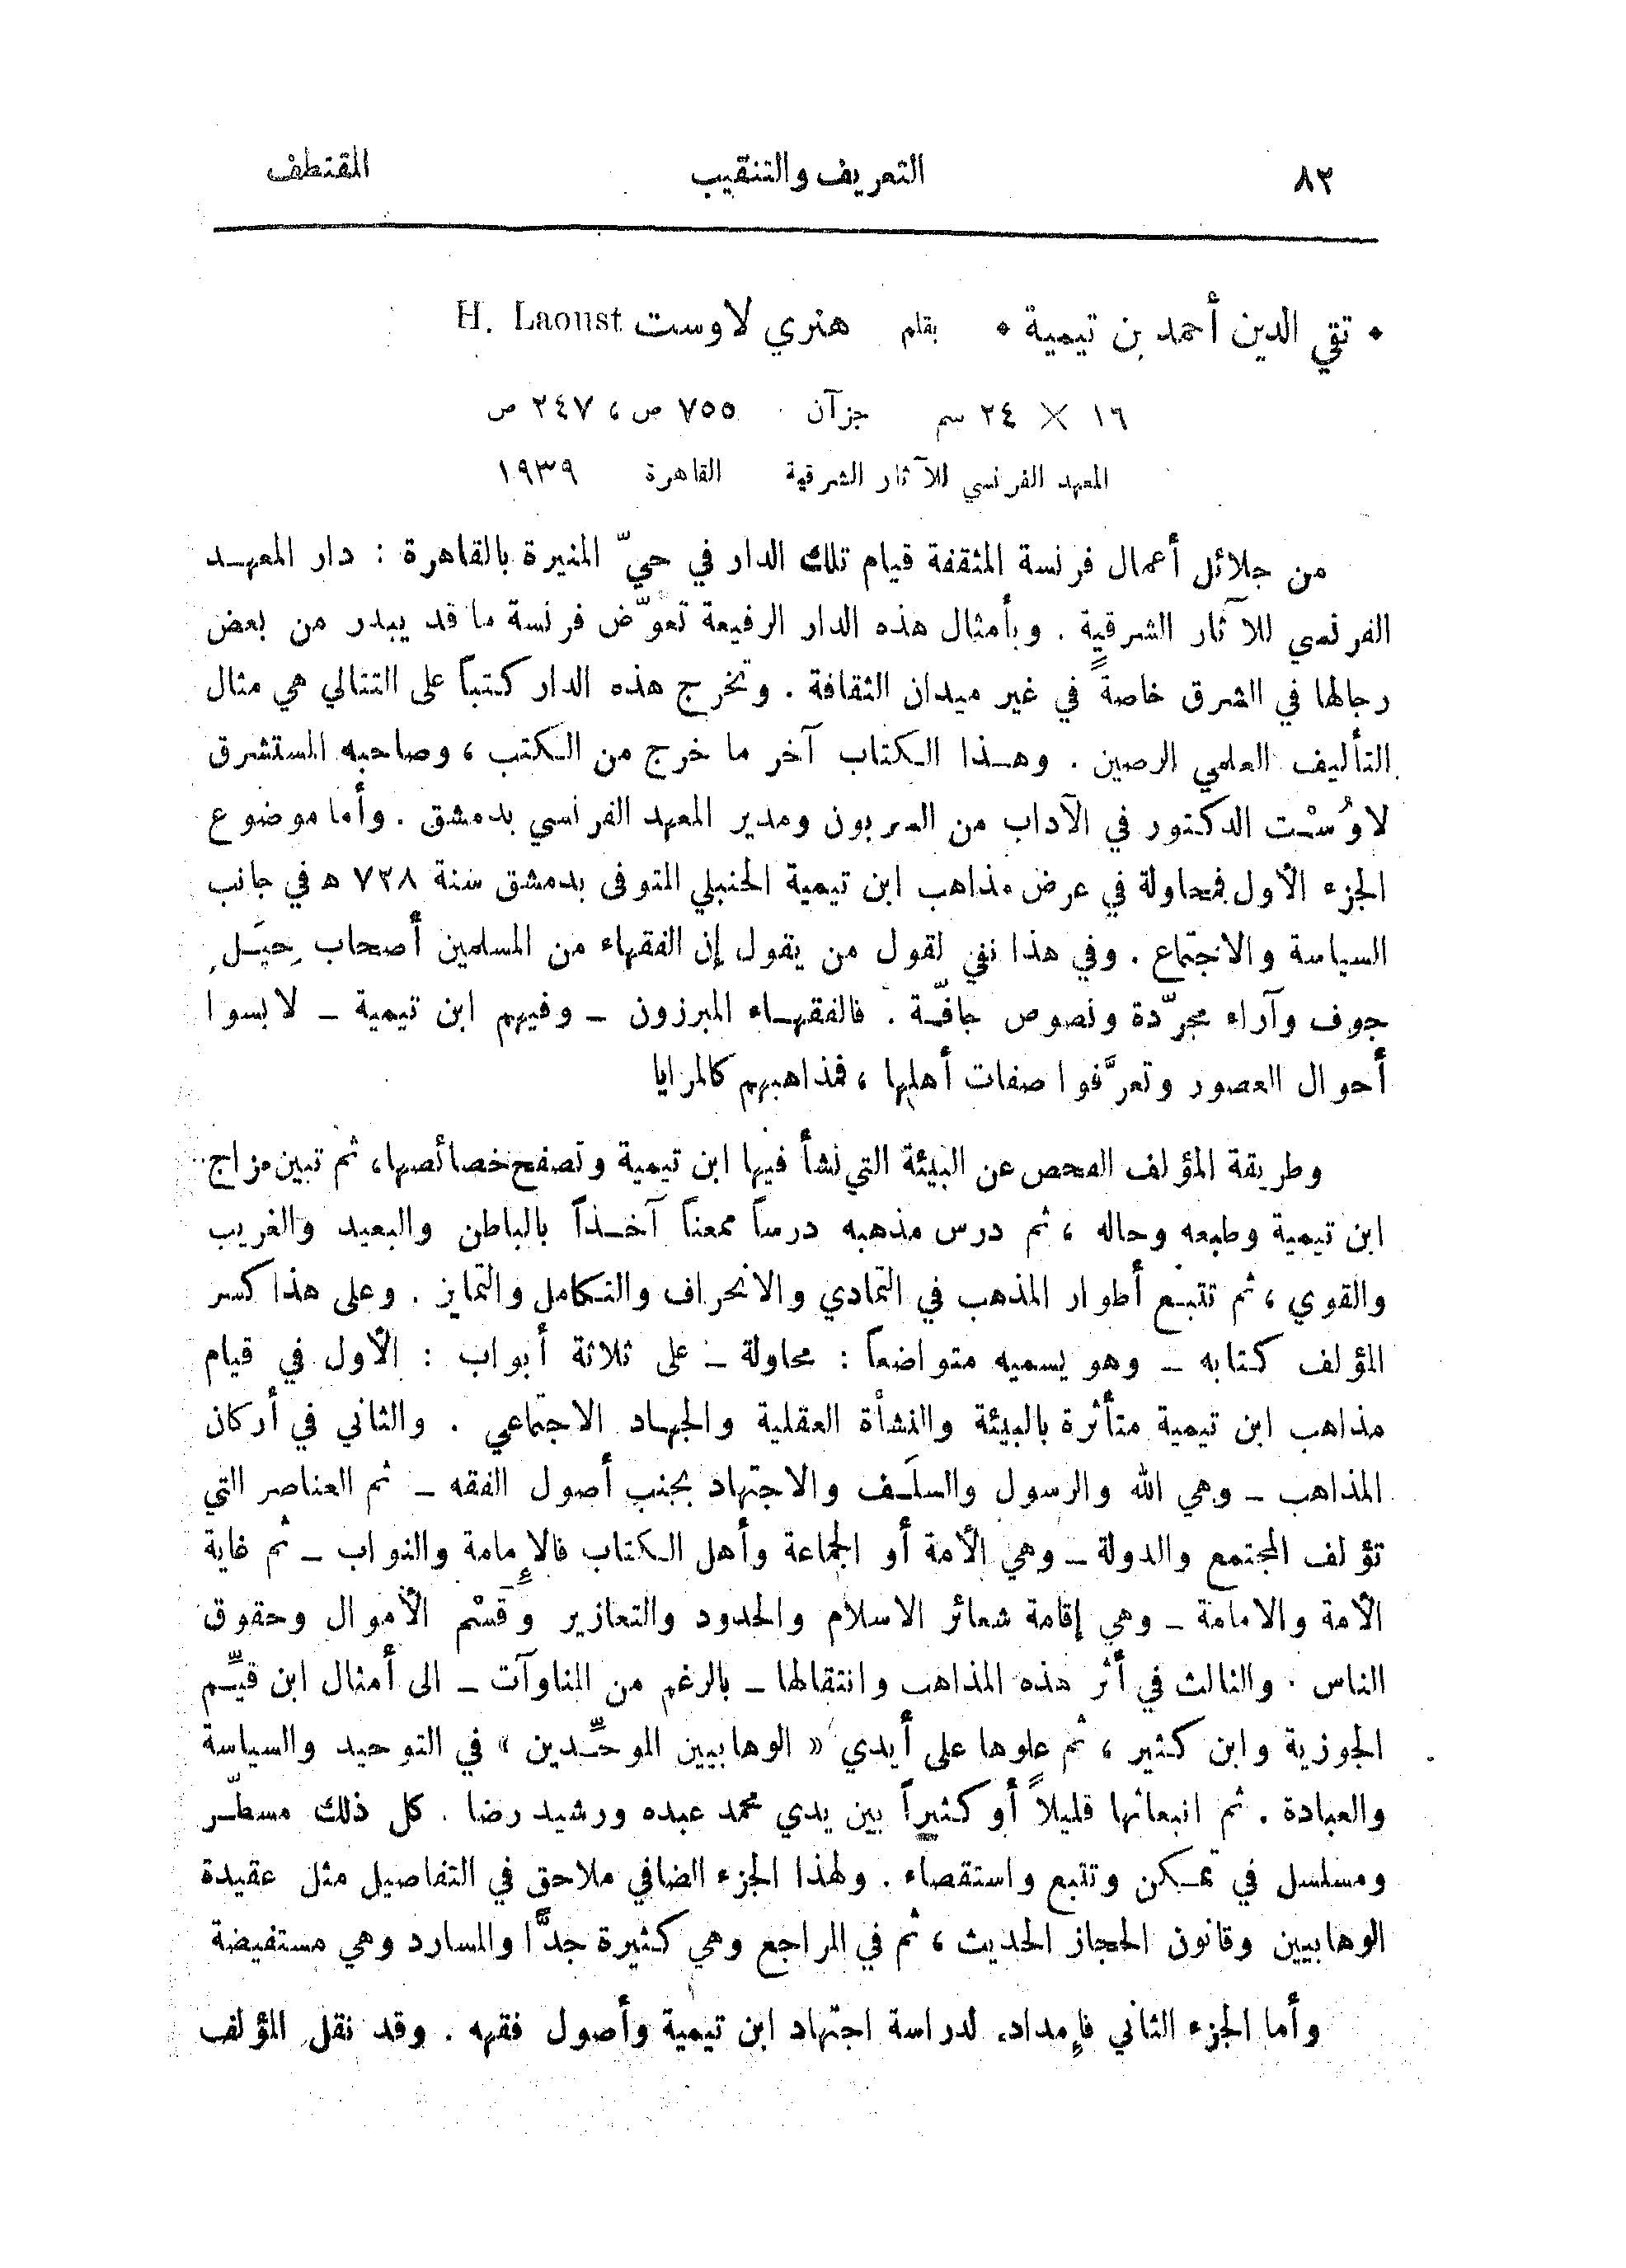 ٨٢ التعريف والتنقيب المقتطف
* تقي الدين أحمد بن تيمية * بقلم هنري لاوست H. Laoust
١٦ × ٢٤ سم جزآن ٧٥٥ ص ، ٢٤٧ ص
المعهد الفرنسي للآثار الشرقية القاهرة ١٩٣٩
من جلائل أعمال فرنسة المثقفة قيام تلك الدار في حيّ المنيرة بالقاهرة : دار المعهـد
الفرنسي للآثار الشرقية . وبأمثال هذه الدار الرفيعة تعوّض فرنسة ما قد يبدر من بعض
رجالها في الشرق خاصةً في غير ميدان الثقافة . وتخرج هذه الدار كتباً على التتالي هي مثال
التأليف العلمي الرصين . وهـذا الكتاب آخر ما خرج من الكتب ، وصاحبه المستشرق
لاوُسْت الدكتور في الآداب من السربون ومدير المعهد الفرنسي بدمشق . وأما موضوع
الجزء الأول فمحاولة في عرض مذاهب ابن تيمية الحنبلي المتوفى بدمشق سنة ٧٢٨ ه في جانب
السياسة والاجتماع . وفي هذا نفي لقول من يقول إن الفقهاء من المسلمين أصحاب حِيَـلٍ
جوف وآراء مجرّدة ونصوص جافّـة . فالفقهـاء المبرزون ـ وفيهم ابن تيمية ـ لابسوا
أحوال العصور وتعرَّفوا صفات أهلها ، فمذاهبهم كالمرايا
وطريقة المؤلف الفحص عن البيئة التي نشأ فيها ابن تيمية وتصفح خصائصها، ثم تبين مزاج
ابن تيمية وطبعه وحاله ، ثم درس مذهبه درساً ممعناً آخـذاً بالباطن والبعيد والغريب
والقوي ، ثم تتبـع أطوار المذهب في التمادي والانحراف والتكامل والتمايز . وعلى هذا كسر
المؤلف كتابه ـ وهو يسميه متواضعاً : محاولة ـ على ثلاثة أبواب : الأول في قيام
مذاهب ابن تيمية متأثرة بالبيئة والنشأة العقلية والجهـاد الاجتماعي . والثاني في أركان
المذاهب ـ وهي الله والرسول والسلَـف والاجتهاد بجنب أصول الفقه ـ ثم العناصر التي
تؤلف المجتمع والدولة ـ وهي الأمة أو الجماعة وأهل الكتاب فالإمامة والنواب ـ ثم غاية
الأمة والامامة ـ وهي إقامة شعائر الاسلام والحدود والتعازير وقَسْم الأموال وحقوق
الناس . والثالث في أثر هذه المذاهب وانتقالها ـ بالرغم من المناوآت ـ الى أمثال ابن قيِّـم
الجوزية وابن كثير ، ثم علوها على أيدي « الوهابيين الموحِّـدين » في التوحيد والسياسة
والعبادة . ثم انبعاثها قليلاً أو كثيراً بين يدي محمد عبده ورشيد رضا . كل ذلك مسطّـر
ومسلسل في تمـكن وتتبع واستقصاء . ولهذا الجزء الضافي ملاحق في التفاصيل مثل عقيدة
الوهابيين وقانون الحجاز الحديث ، ثم في المراجع وهي كثيرة جدًّا والمسارد وهي مستفيضة
وأما الجزء الثاني فإمداد لدراسة اجتهاد ابن تيمية وأصول فقهه . وقد نقل المؤلف